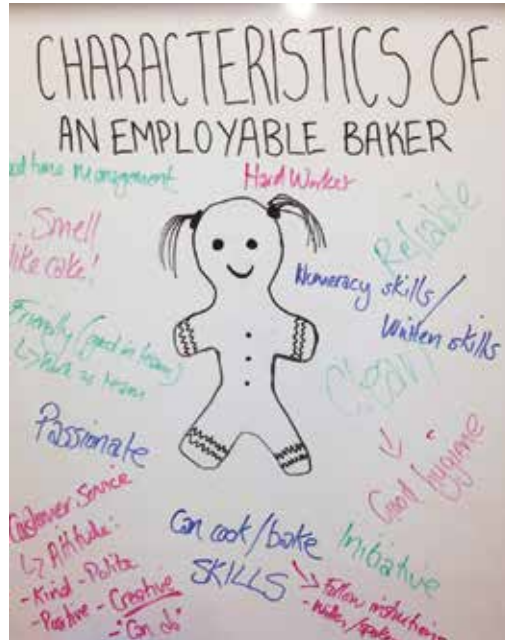 CHARACTERISTICS OF
AN EMPLOYABLE BAKER
time management
Hard Worker
Reliable
Smell
like cake!
Numeracy skills/
Written skills
Friendly (good in teams)
Clean
Passionate
Good hygiene
Customer Service
Attitude:
-Kind - Polite
-Positive - Creative
- "Can do"
Can cook/bake
SKILLS
Initiative
Follow instructions